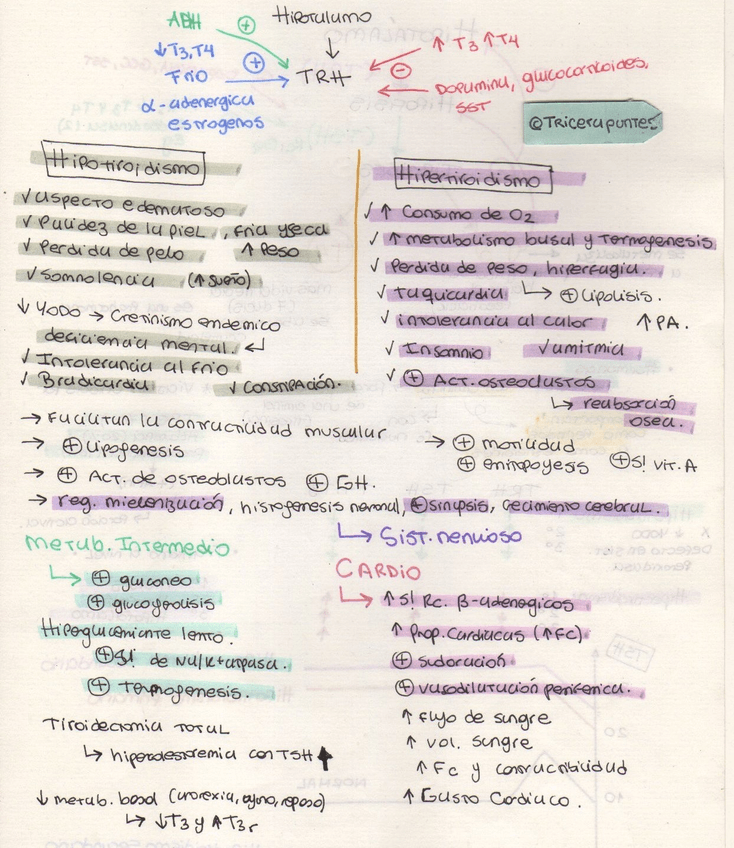 ADH ⊕ Hipotálamo
↓T3,T4
Frío ⊕ → TRH
α-adenergica
estrogenos
↑ T3 ↑T4
⊖
Dopamina, glucocorticoides,
SST
@Tricerapuntes
Hipotiroidismo
✓ Aspecto edematoso
✓ Palidez de la piel, fria y seca
✓ Perdida de pelo ↑ Peso
✓ Somnolencia (↑ sueño)
↓ Yodo → Cretinismo endemico
deficiencia mental. ↵
✓ Intolerancia al frio
✓ Bradicardia ✓ Constipación.
Hipertiroidismo
✓ ↑ Consumo de O2
✓ ↑ metabolismo basal y Termogenesis
✓ Perdida de peso, hiperfagia.
✓ Taquicardia ↳ ⊕ Lipolisis.
✓ intolerancia al calor ↑ PA.
✓ Insomnio ✓ arritmia
✓ ⊕ Act. osteoclastos
↳ reabsorción
osea.
→ Facilitan la contractilidad muscular
→ ⊕ Lipogenesis
→ ⊕ motilidad
⊕ eritropoyesis ⊕ S! vit. A
→ ⊕ Act. de osteoblastos ⊕ GH.
→ reg. mielinización, histogenesis neronal, ⊕ sinapsis, crecimiento cerebral.
↳ Sist. nervioso
Metab. Intermedio
↳ ⊕ gluconeo
⊕ glucogenolisis
Hiperglucemiante lento.
⊕ S! de Na/K+atpasa.
⊕ Termogenesis.
Tiroidectomia Total
↳ hipercolesteremia con TSH ↑
↓ metab. basal (anorexia, ayuno, reposo)
↳ ↓T3 y ↑T3r
Cardio
↳ ↑ S! Rc. β-adenegicos
↑ Prop. Cardiacas (↑FC)
⊕ sudoración
⊕ vasodilatación periferica.
↑ Flujo de sangre
↑ vol. sangre
↑ Fc y contractibilidad
↑ Gasto Cardiaco.